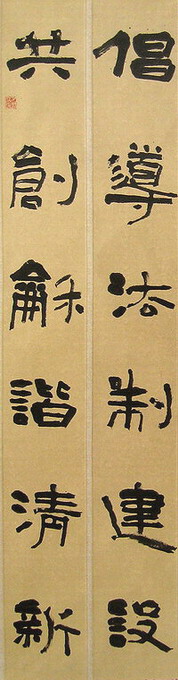 倡導法制建設
共創龢諧清新